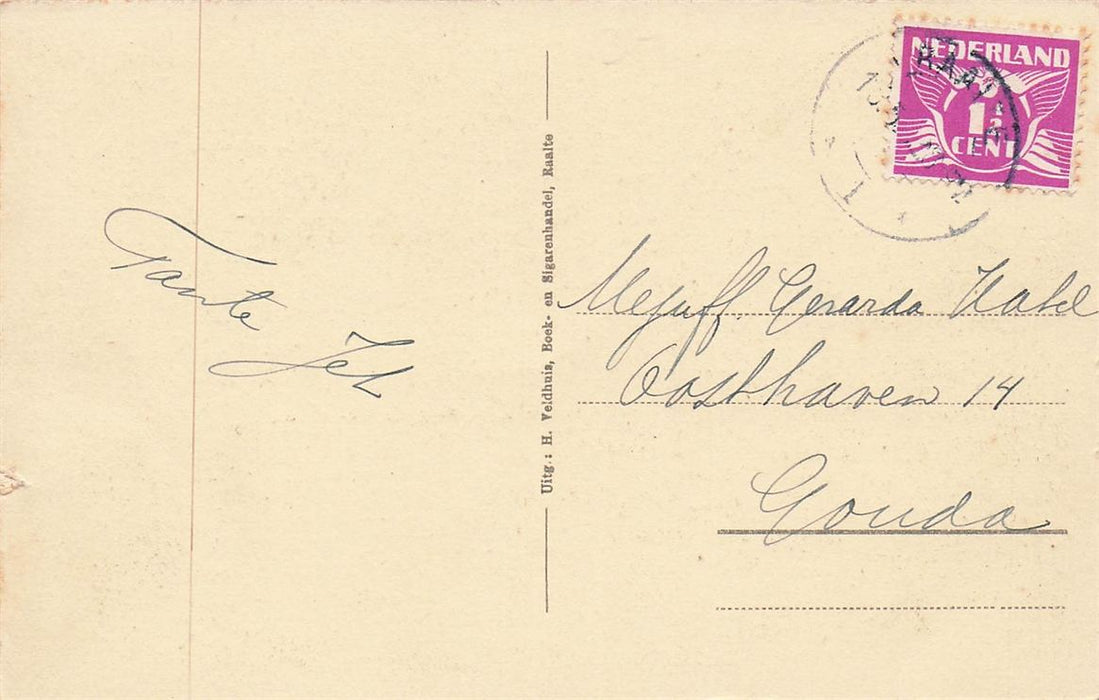 Tante
Jet
Uitg.: H. Veldhuis, Boek- en Sigarenhandel, Raalte
NEDERLAND
1½
CENT
RAALTE
Mejuff. Gerarda Kabel
Oosthaven 14
Gouda